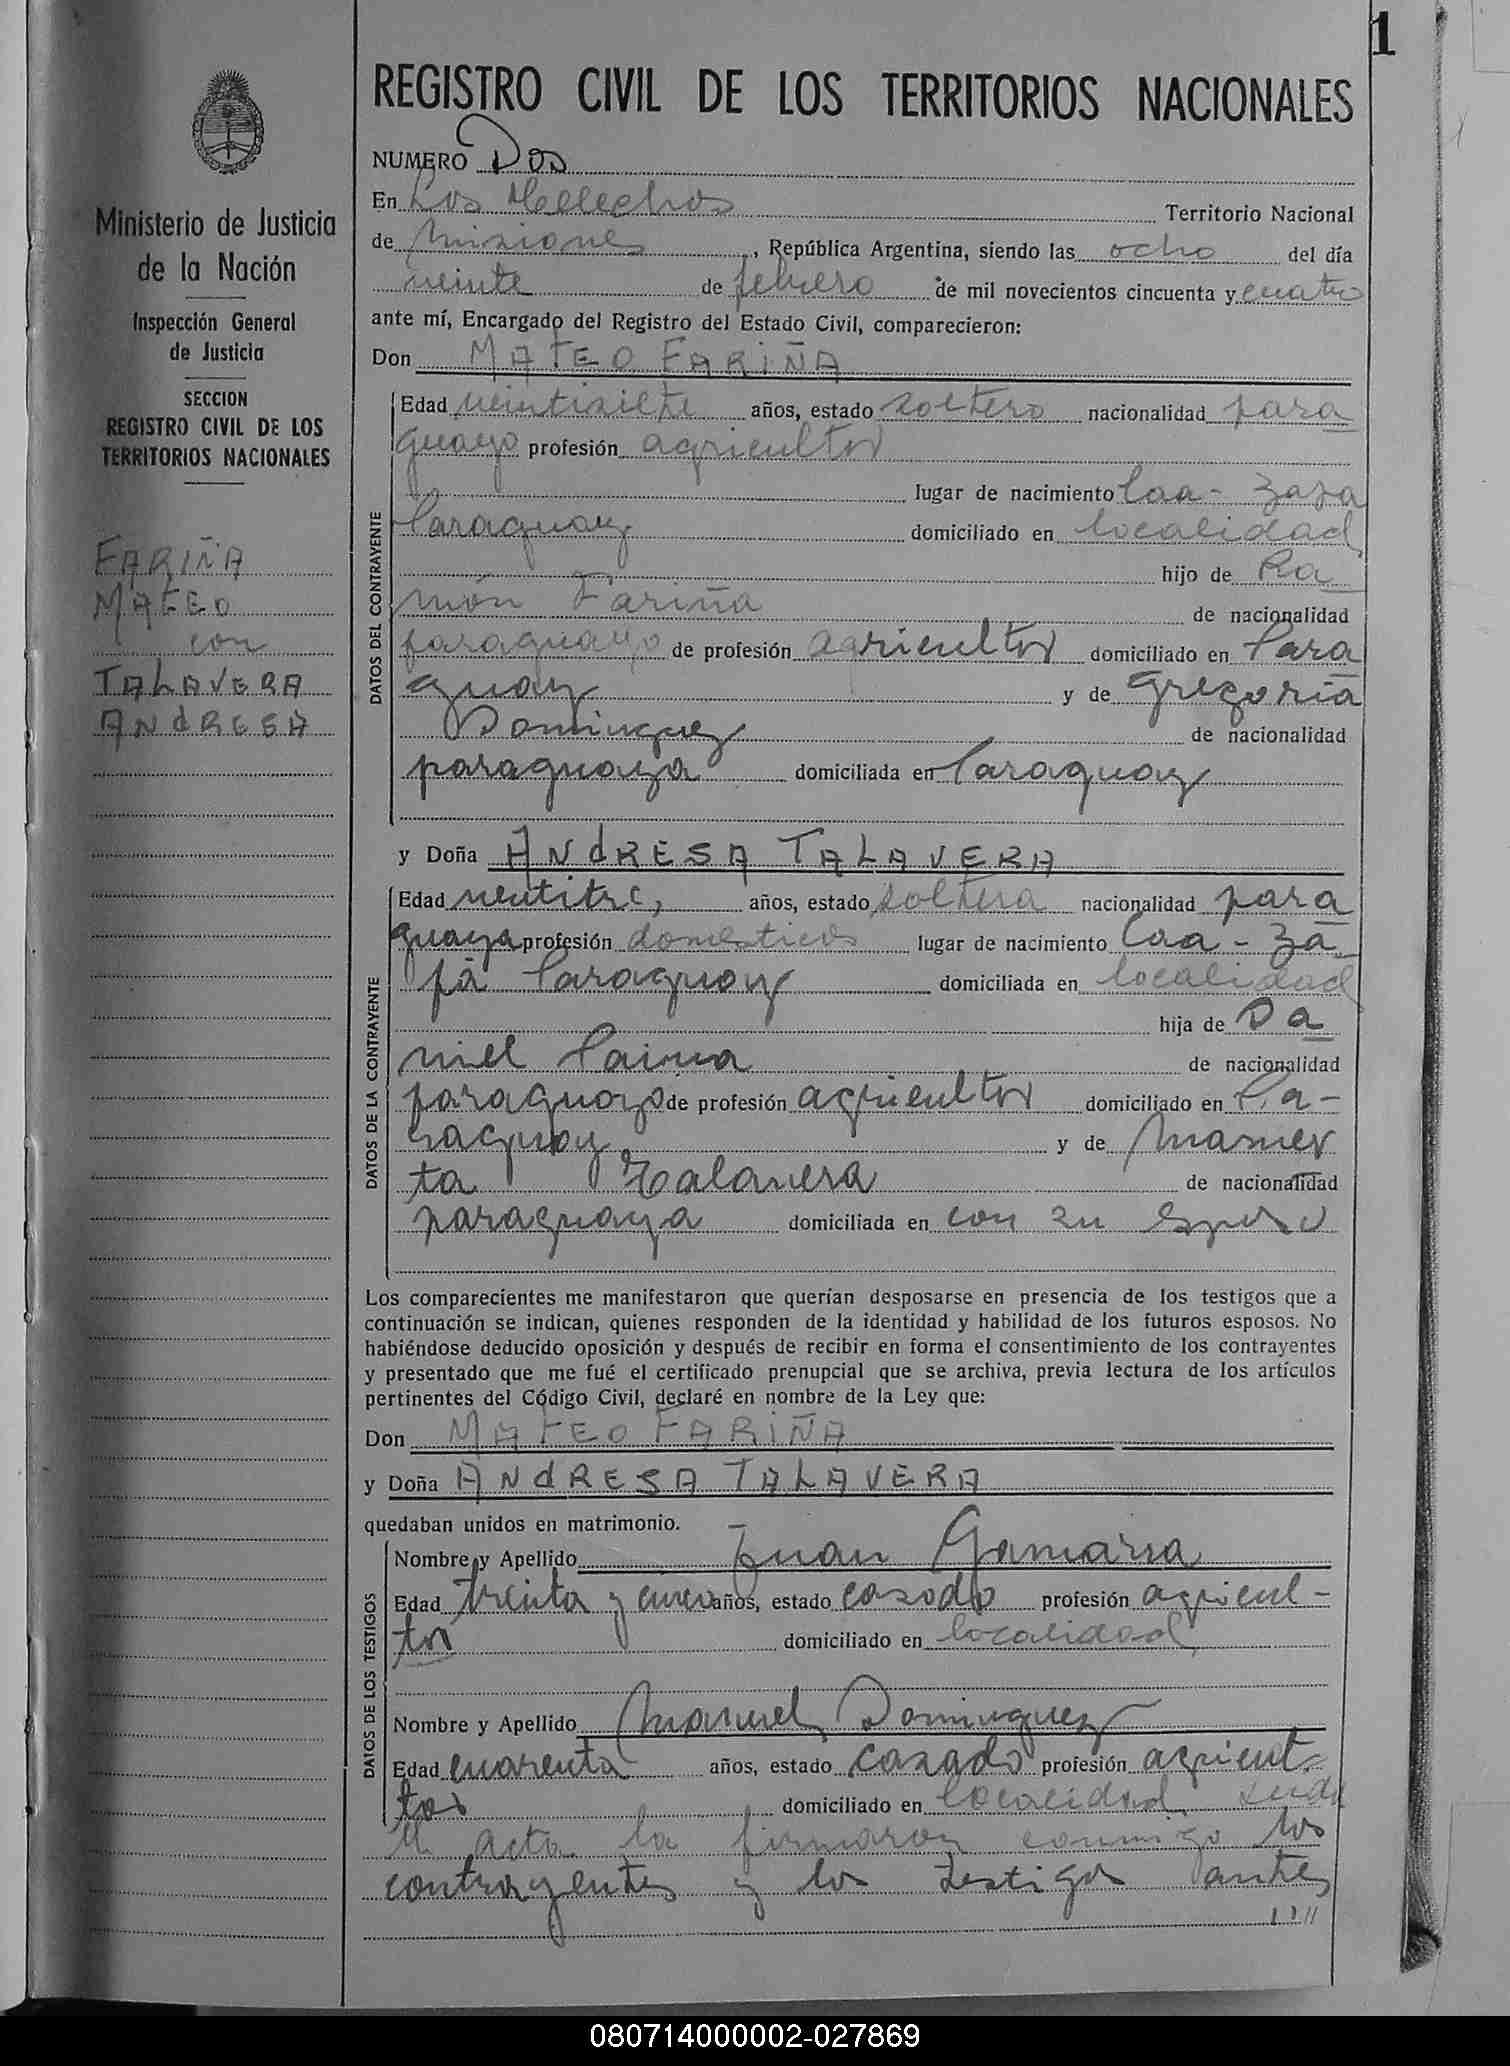 1
REGISTRO CIVIL DE LOS TERRITORIOS NACIONALES
NUMERO Dos
En Los Helechos Territorio Nacional
de Misiones, República Argentina, siendo las ocho del día
veinte de febrero de mil novecientos cincuenta y cuatro
ante mí, Encargado del Registro del Estado Civil, comparecieron:
Don MATEO FARIÑA
DATOS DEL CONTRAYENTE
Edad veintisiete años, estado soltero nacionalidad para
guayo profesión agricultor
lugar de nacimiento Caa-
Paraguay domiciliado en localidad
hijo de Ra
món Fariña de nacionalidad
paraguayo de profesión agricultor domiciliado en Para
guay y de Gregoria
Dominguez de nacionalidad
paraguaya domiciliada en Paraguay
y Doña ANdRESA TALAVERA
DATOS DE LA CONTRAYENTE
Edad años, estado soltera nacionalidad para
guaya profesión domesticos lugar de nacimiento Caa-Za
pá Paraguay domiciliada en localidad
hija de Da
niel de nacionalidad
paraguayo de profesión agricultor domiciliado en Pa-
raguay y de Mamer
ta Talavera de nacionalidad
paraguaya domiciliada en con su esposo
Los comparecientes me manifestaron que querían desposarse en presencia de los testigos que a
continuación se indican, quienes responden de la identidad y habilidad de los futuros esposos. No
habiéndose deducido oposición y después de recibir en forma el consentimiento de los contrayentes
y presentado que me fué el certificado prenupcial que se archiva, previa lectura de los artículos
pertinentes del Código Civil, declaré en nombre de la Ley que:
Don MATEO FARIÑA
y Doña ANdRESA TALAVERA
quedaban unidos en matrimonio.
DATOS DE LOS TESTIGOS
Nombre y Apellido Juan Gamarra
Edad treinta y cinco años, estado casado profesión agricul-
tor domiciliado en localidad
Nombre y Apellido Manuel Dominguez
Edad cuarenta años, estado casado profesión agricul-
tor domiciliado en localidad
el acta la firmaron conmigo los
contrayentes y los testigos antes
Ministerio de Justicia
de la Nación
Inspección General
de Justicia
SECCION
REGISTRO CIVIL DE LOS
TERRITORIOS NACIONALES
FARIÑA
MATEO
con
TALAVERA
ANdRESA
080714000002-027869